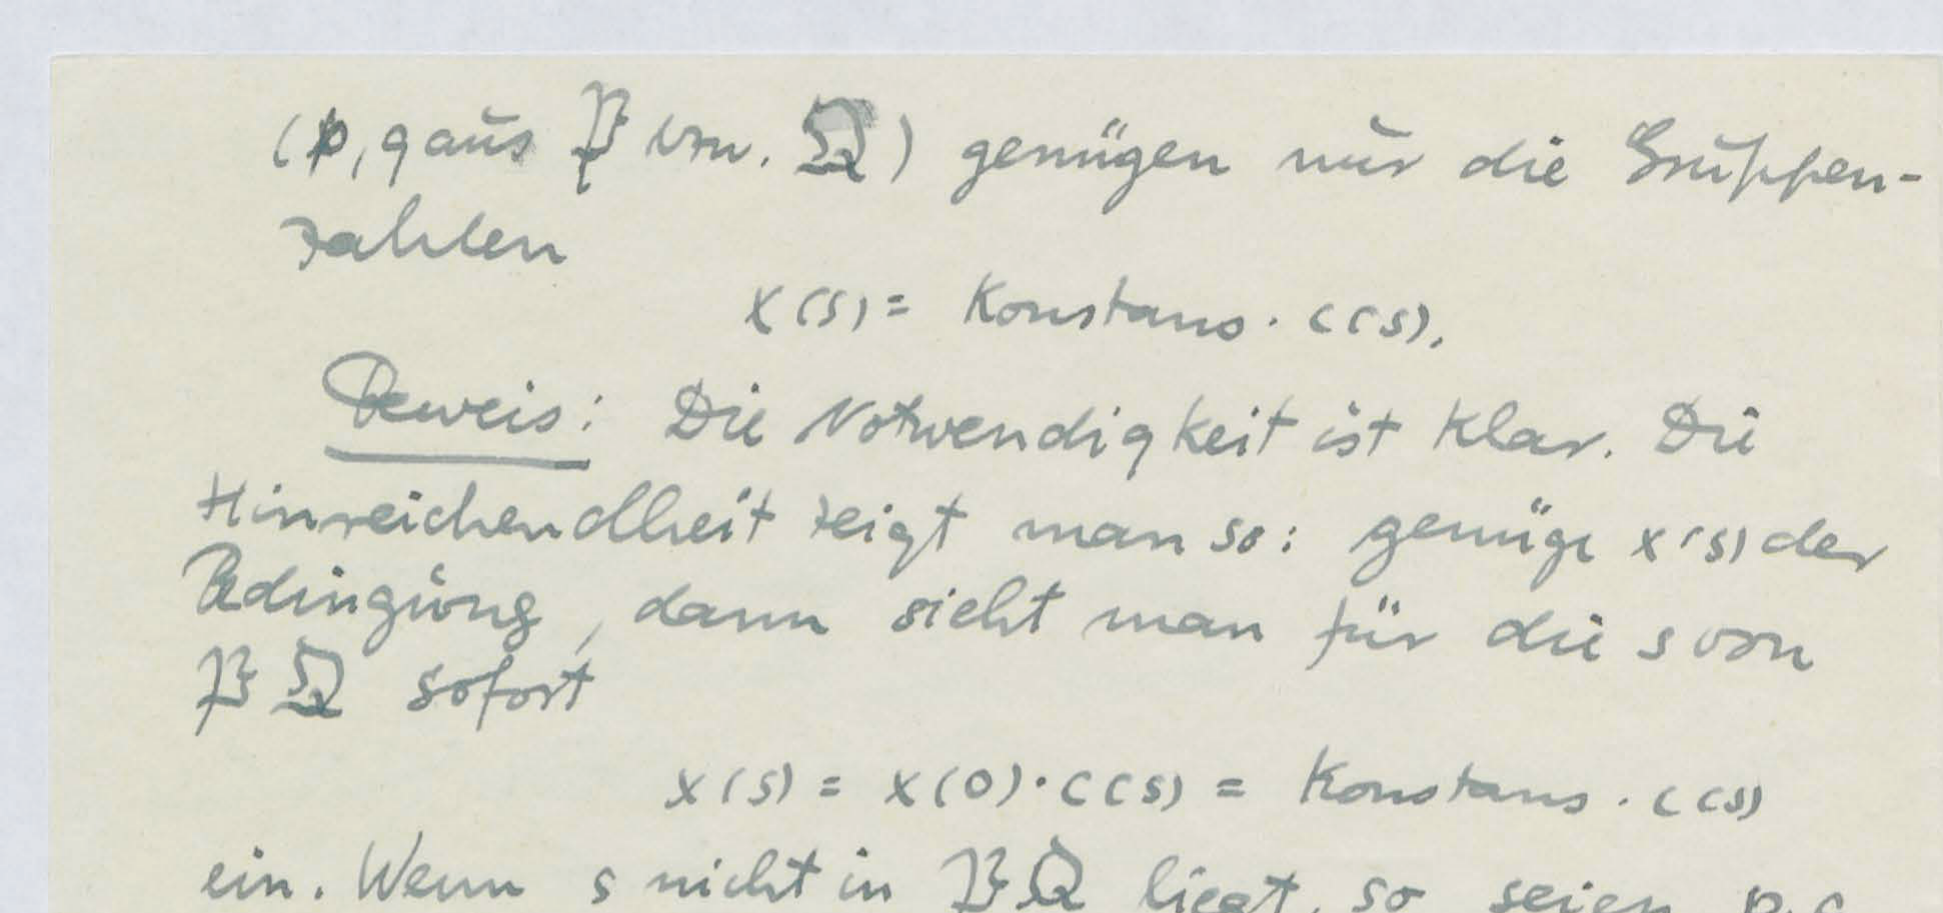 (p, q aus 𝔓 bzw. 𝔔) genügen nur die Gruppen-
zahlen
x(s) = Konstans · c(s).
Beweis: Die Notwendigkeit ist klar. Die
Hinreichendheit zeigt man so: genüge x(s) der
Bedingung, dann sieht man für die s von
𝔓𝔔 sofort
x(s) = x(0) · c(s) = Konstans · c(s)
ein. Wenn s nicht in 𝔓𝔔 liegt, so seien p, q